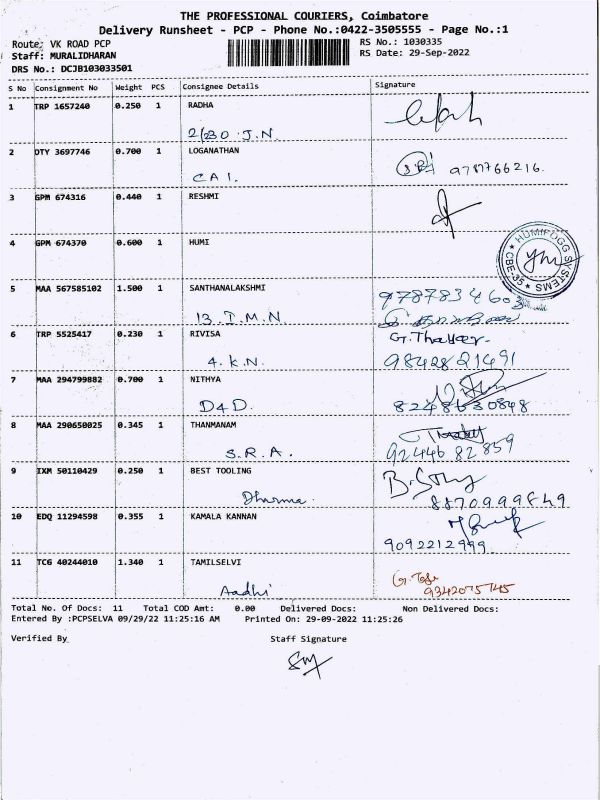 THE PROFESSIONAL COURIERS, Coimbatore
Delivery Runsheet - PCP - Phone No.:0422-3505555 - Page No.:1
Route: VK ROAD PCP RS No.: 1030335
Staff: MURALIDHARAN RS Date: 29-Sep-2022
DRS No.: DCJB103033501
S No Consignment No Weight PCS Consignee Details Signature
1 TRP 1657240 0.250 1 RADHA
2/30 J.N.
2 DTY 3697746 0.700 1 LOGANATHAN
CAI. 9787766216.
3 GPM 674316 0.440 1 RESHMI
4 GPM 674370 0.600 1 HUMI
HUMIFOGG SYSTEMS ★ CBE-35 ★
5 MAA 567585102 1.500 1 SANTHANALAKSHMI
13. I.M.N
6 TRP 5525417 0.230 1 RIVISA
4. K.N. 9842821491
7 MAA 294799882 0.700 1 NITHYA
D4D. 8248630848
8 MAA 290650025 0.345 1 THANMANAM
S.R.A. 9244682859
9 IXM 50110429 0.250 1 BEST TOOLING
Dharma. 8870999849
10 EDQ 11294598 0.355 1 KAMALA KANNAN
9092212999
11 TCG 40244010 1.340 1 TAMILSELVI
Aadhi 9342075745
Total No. Of Docs: 11 Total COD Amt: 0.00 Delivered Docs: Non Delivered Docs:
Entered By :PCPSELVA 09/29/22 11:25:16 AM Printed On: 29-09-2022 11:25:26
Verified By Staff Signature